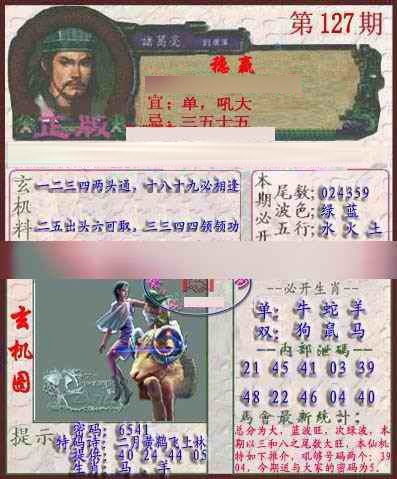 第127期
諸葛亮
稳赢
宜：单，吼大
忌：三五十五
正版
玄机料
一二三四两头通，十八十九必相逢
二五出头六可取，三三四四领领功
本期必开
尾数：024359
波色：绿 蓝
五行：水 火 土
玄机图
--必开生肖--
单：牛 蛇 羊
双：狗 鼠 马
--内部泄码--
21 45 41 03 39
48 22 46 04 40
馬會最新统计：
总分为大，蓝波旺，次绿波，本
期以三和八之尾数大旺，本仙机
特如下推介，吼够号码两个：39
04，今期送与大家的密码为5.
提示
密码：6541
特码诗：二月黄鹤飞上林
提供：40 24 44 05
生肖：马、羊